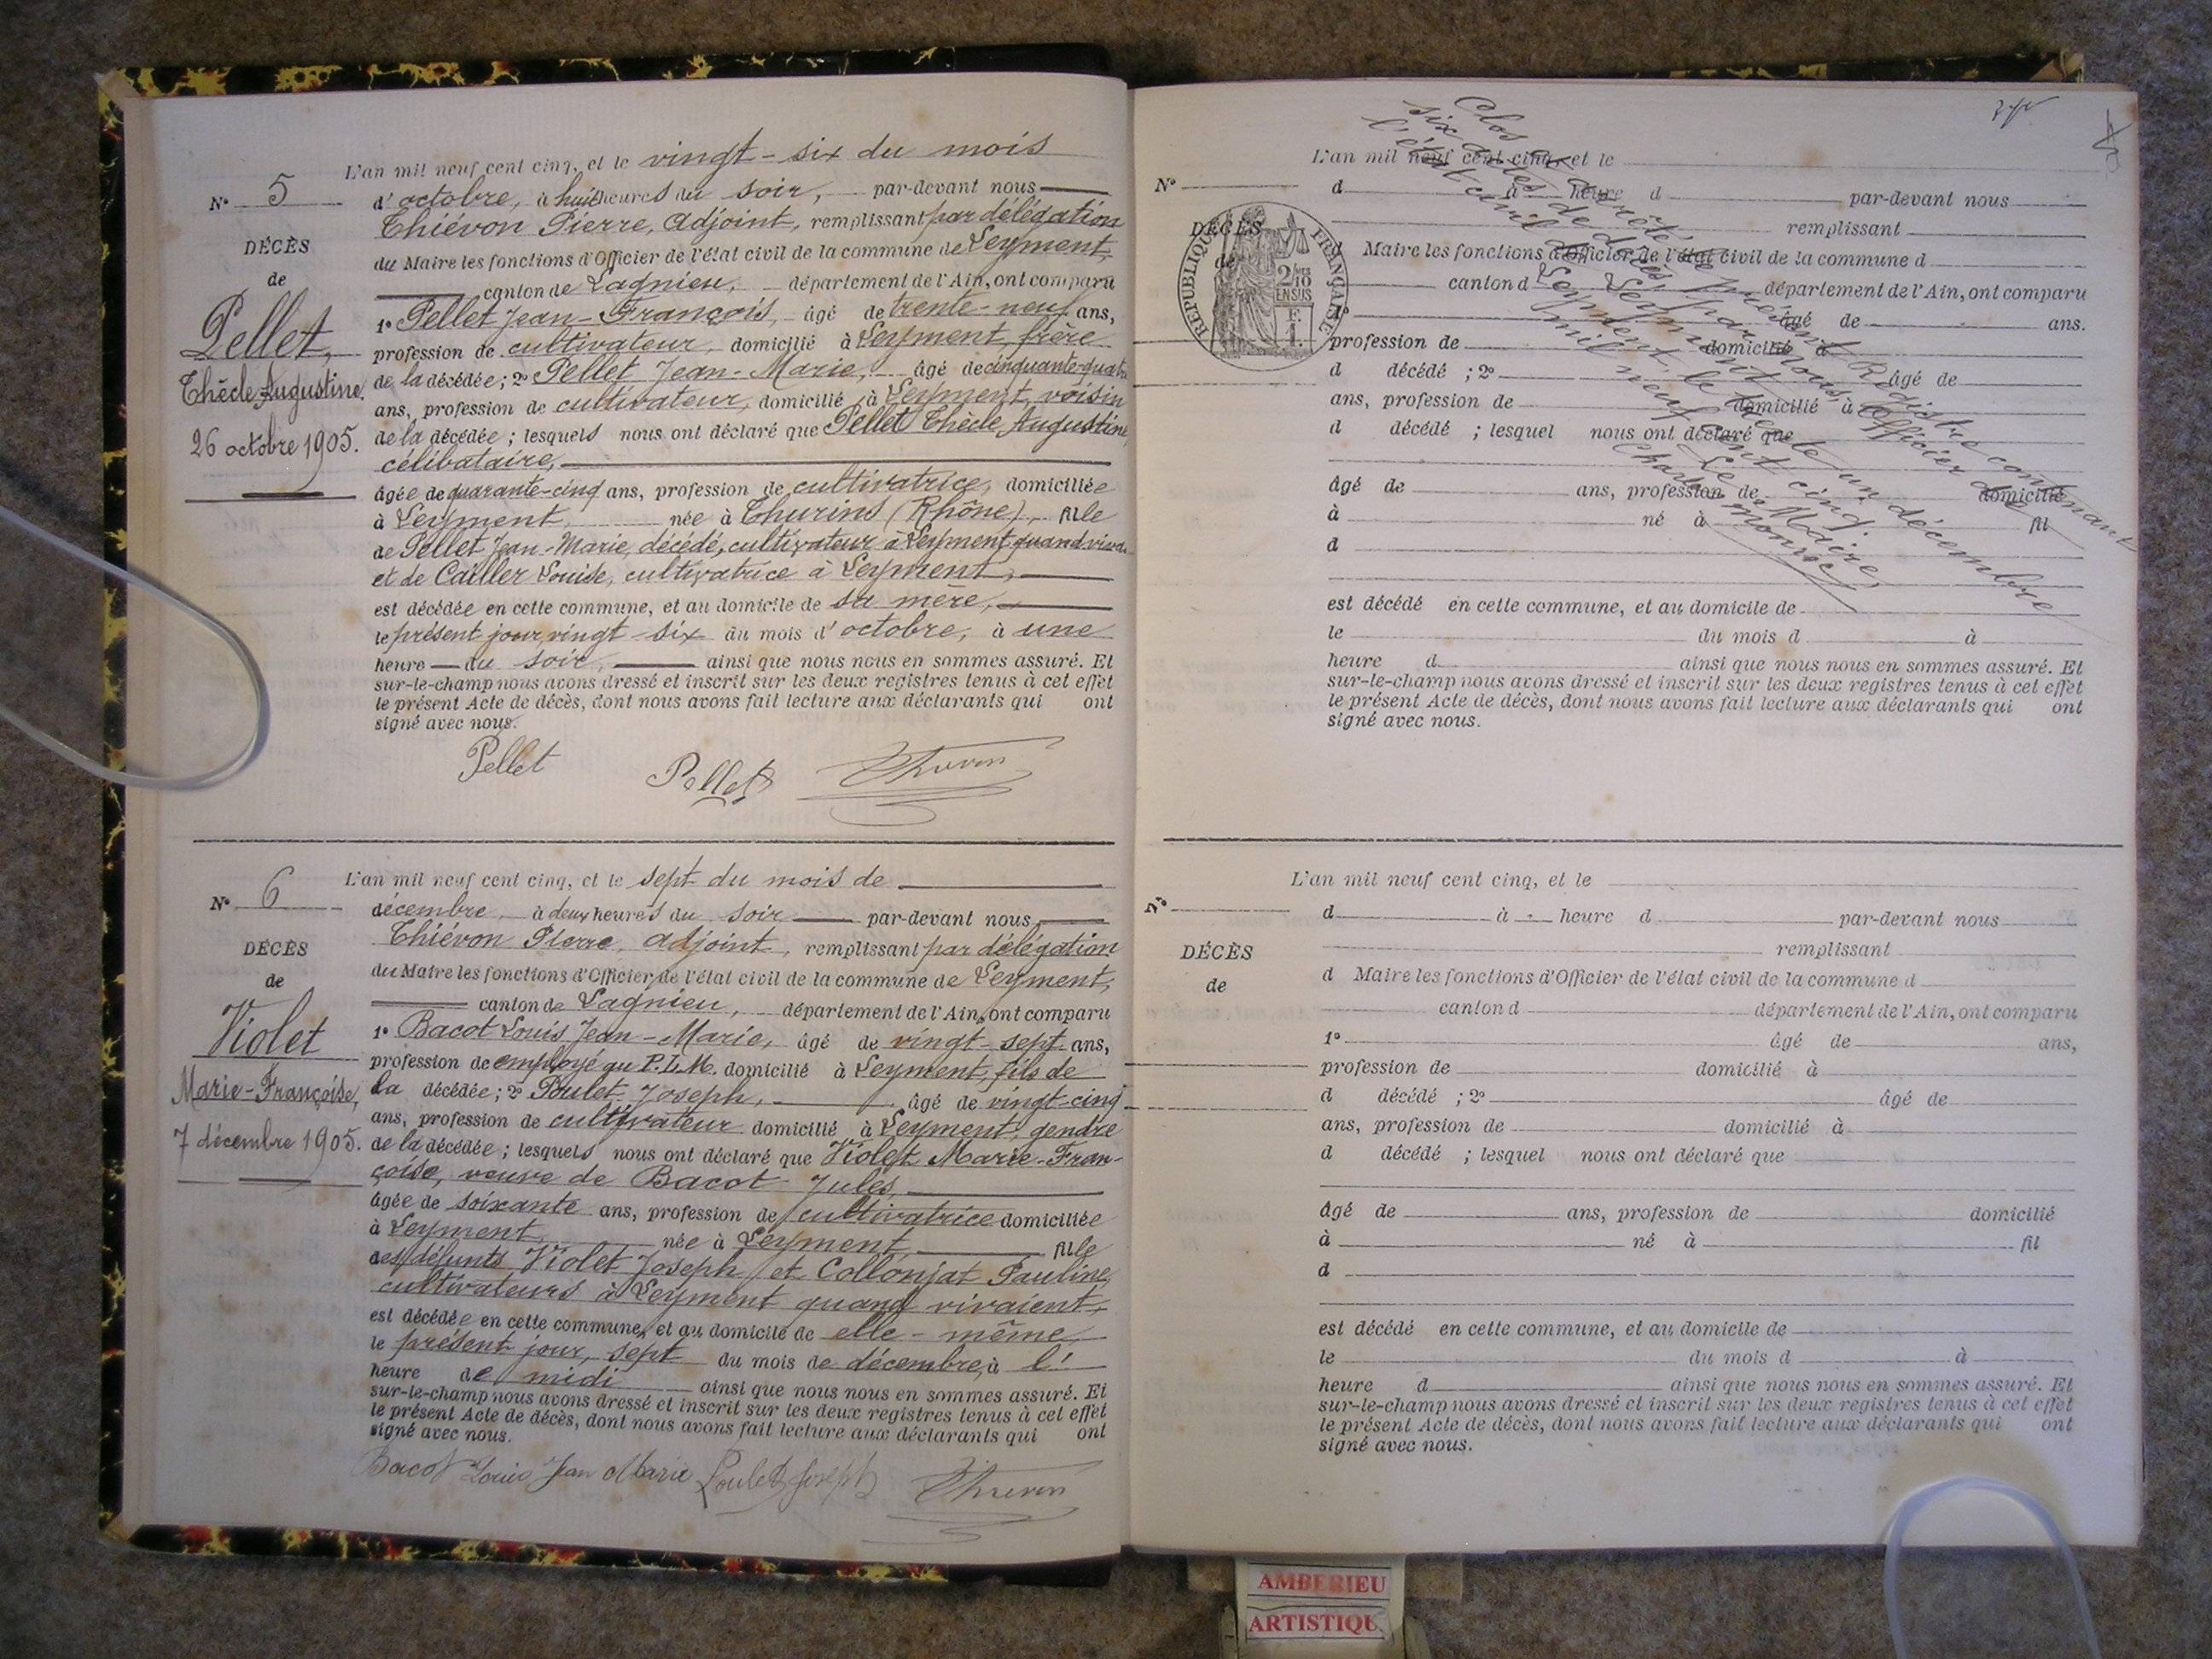 L'an mil neuf cent cinq, et le vingt-six du mois
N° 5
d'octobre, à huit heures du soir, par-devant nous
Thiévon Pierre, adjoint, remplissant par délégation
DÉCÈS
du Maire les fonctions d'Officier de l'état civil de la commune de Leyment,
de
canton de Lagnieu, département de l'Ain, ont comparu
Pellet,
1° Pellet Jean-François, âgé de trente-neuf ans,
profession de cultivateur, domicilié à Leyment, frère
Thècle Augustine.
de la décédée ; 2° Pellet Jean-Marie, âgé de cinquante-quatre
ans, profession de cultivateur, domicilié à Leyment, voisin
26 octobre 1905.
de la décédée ; lesquels nous ont déclaré que Pellet Thècle Augustine,
célibataire,
âgée de quarante-cinq ans, profession de cultivatrice, domiciliée
à Leyment, née à Thurins (Rhône), fille
de Pellet Jean-Marie, décédé, cultivateur à Leyment, quand
et de Cailler Louise, cultivatrice à Leyment,
est décédée en cette commune, et au domicile de sa mère,
le présent jour, vingt-six du mois d'octobre, à une
heure du soir, ainsi que nous nous en sommes assuré. Et
sur-le-champ nous avons dressé et inscrit sur les deux registres tenus à cet effet
le présent Acte de décès, dont nous avons fait lecture aux déclarants qui ont
signé avec nous.
Pellet Pellet Thievon
L'an mil neuf cent cinq, et le sept du mois de
N° 6
décembre, à deux heures du soir par-devant nous
Thiévon Pierre, adjoint, remplissant par délégation
DÉCÈS
du Maire les fonctions d'Officier de l'état civil de la commune de Leyment,
de
canton de Lagnieu, département de l'Ain, ont comparu
Violet
1° Bacot Louis Jean-Marie, âgé de vingt-sept ans,
profession de employé au P.L.M. domicilié à Leyment, fils de
Marie-Françoise,
la décédée ; 2° Poulet Joseph, âgé de vingt-cinq
ans, profession de cultivateur domicilié à Leyment, gendre
7 décembre 1905.
de la décédée ; lesquels nous ont déclaré que Violet Marie-Fran-
çoise, veuve de Bacot Jules,
âgée de soixante ans, profession de cultivatrice domiciliée
à Leyment, née à Leyment, fille
des défunts Violet Joseph et Collonjat Pauline,
cultivateurs à Leyment quand vivaient,
est décédée en cette commune, et au domicile de elle-même,
le présent jour, sept du mois de décembre, à l'
heure de midi ainsi que nous nous en sommes assuré. Et
sur-le-champ nous avons dressé et inscrit sur les deux registres tenus à cet effet
le présent Acte de décès, dont nous avons fait lecture aux déclarants qui ont
signé avec nous.
Bacot Louis Jean Marie Poulet Joseph Thievon
L'an mil neuf cent cinq, et le
N°
d à heure d par-devant nous
remplissant
DÉCÈS
de
d Maire les fonctions d'Officier de l'état civil de la commune d
canton d département de l'Ain, ont comparu
1° âgé de ans.
profession de domicilié à
d décédé ; 2° âgé de
ans, profession de domicilié à
d décédé ; lesquel nous ont déclaré que
âgé de ans, profession de domicilié
à né à fil
d
est décédé en cette commune, et au domicile de
le du mois d à
heure d ainsi que nous nous en sommes assuré. Et
sur-le-champ nous avons dressé et inscrit sur les deux registres tenus à cet effet
le présent Acte de décès, dont nous avons fait lecture aux déclarants qui ont
signé avec nous.
RÉPUBLIQUE FRANÇAISE
2/10
EN SUS
F.
1.
Clos et arrêté le présent Registre contenant
six actes de décès par nous, Officier de
l'état civil de Leyment
Leyment, le trente un décembre
mil neuf cent cinq
Le Maire,
L'an mil neuf cent cinq, et le
N°
d à heure d par-devant nous
remplissant
DÉCÈS
d Maire les fonctions d'Officier de l'état civil de la commune d
de
canton d département de l'Ain, ont comparu
1° âgé de ans,
profession de domicilié à
d décédé ; 2° âgé de
ans, profession de domicilié à
d décédé ; lesquel nous ont déclaré que
âgé de ans, profession de domicilié
à né à fil
d
est décédé en cette commune, et au domicile de
le du mois d à
heure d ainsi que nous nous en sommes assuré. Et
sur-le-champ nous avons dressé et inscrit sur les deux registres tenus à cet effet
le présent Acte de décès, dont nous avons fait lecture aux déclarants qui ont
signé avec nous.
AMBERIEU
ARTISTIQU